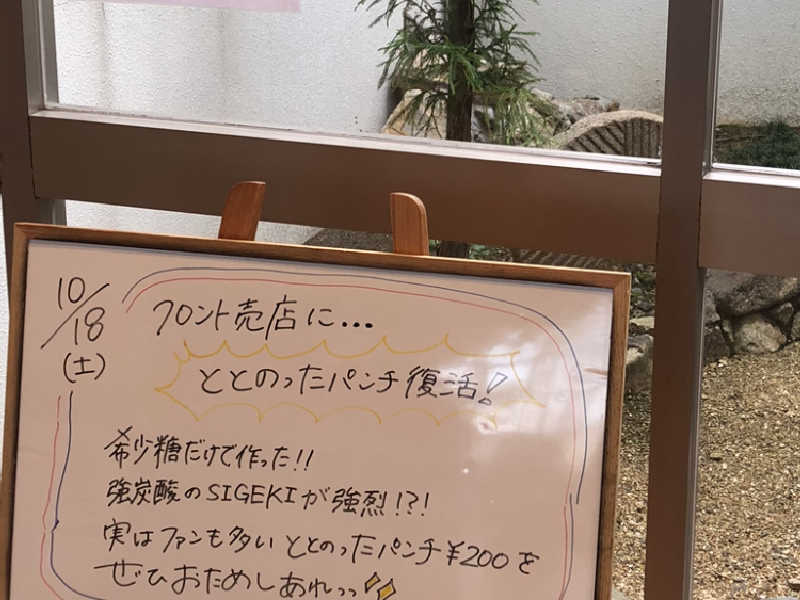 10/18
(土)
フロント売店に...
ととのったパンチ復活!
希少糖だけで作った!!
強炭酸のSIGEKIが強烈!?!
実はファンも多いととのったパンチ¥200を
ぜひおためしあれっっ